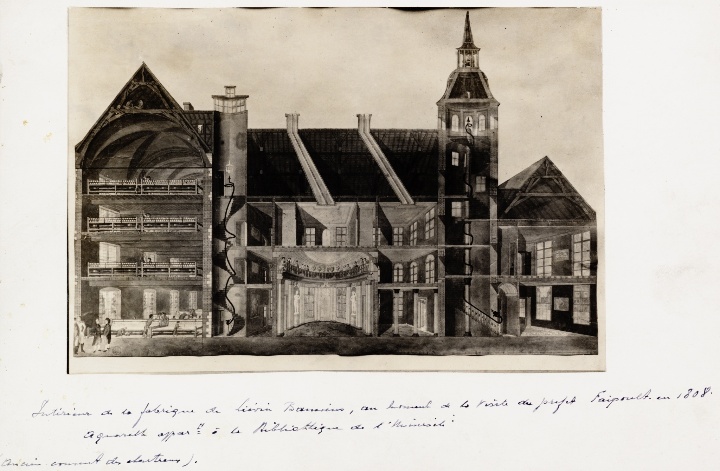 Intérieur de la fabrique de Liévin Bauwens, au moment de la visite du préfet Faipoult en 1808.
Aquarelle appart à la Bibliothèque de l'Université
(Ancien couvent des chartreux).